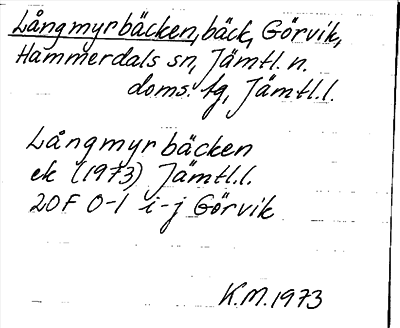 Långmyrbäcken, bäck, Görvik,
Hammerdals sn, Jämtl. n.
doms. tg, Jämtl.l.
Långmyrbäcken
ek (1973) Jämtl.l.
20F 0-1 i-j Görvik
K.M. 1973